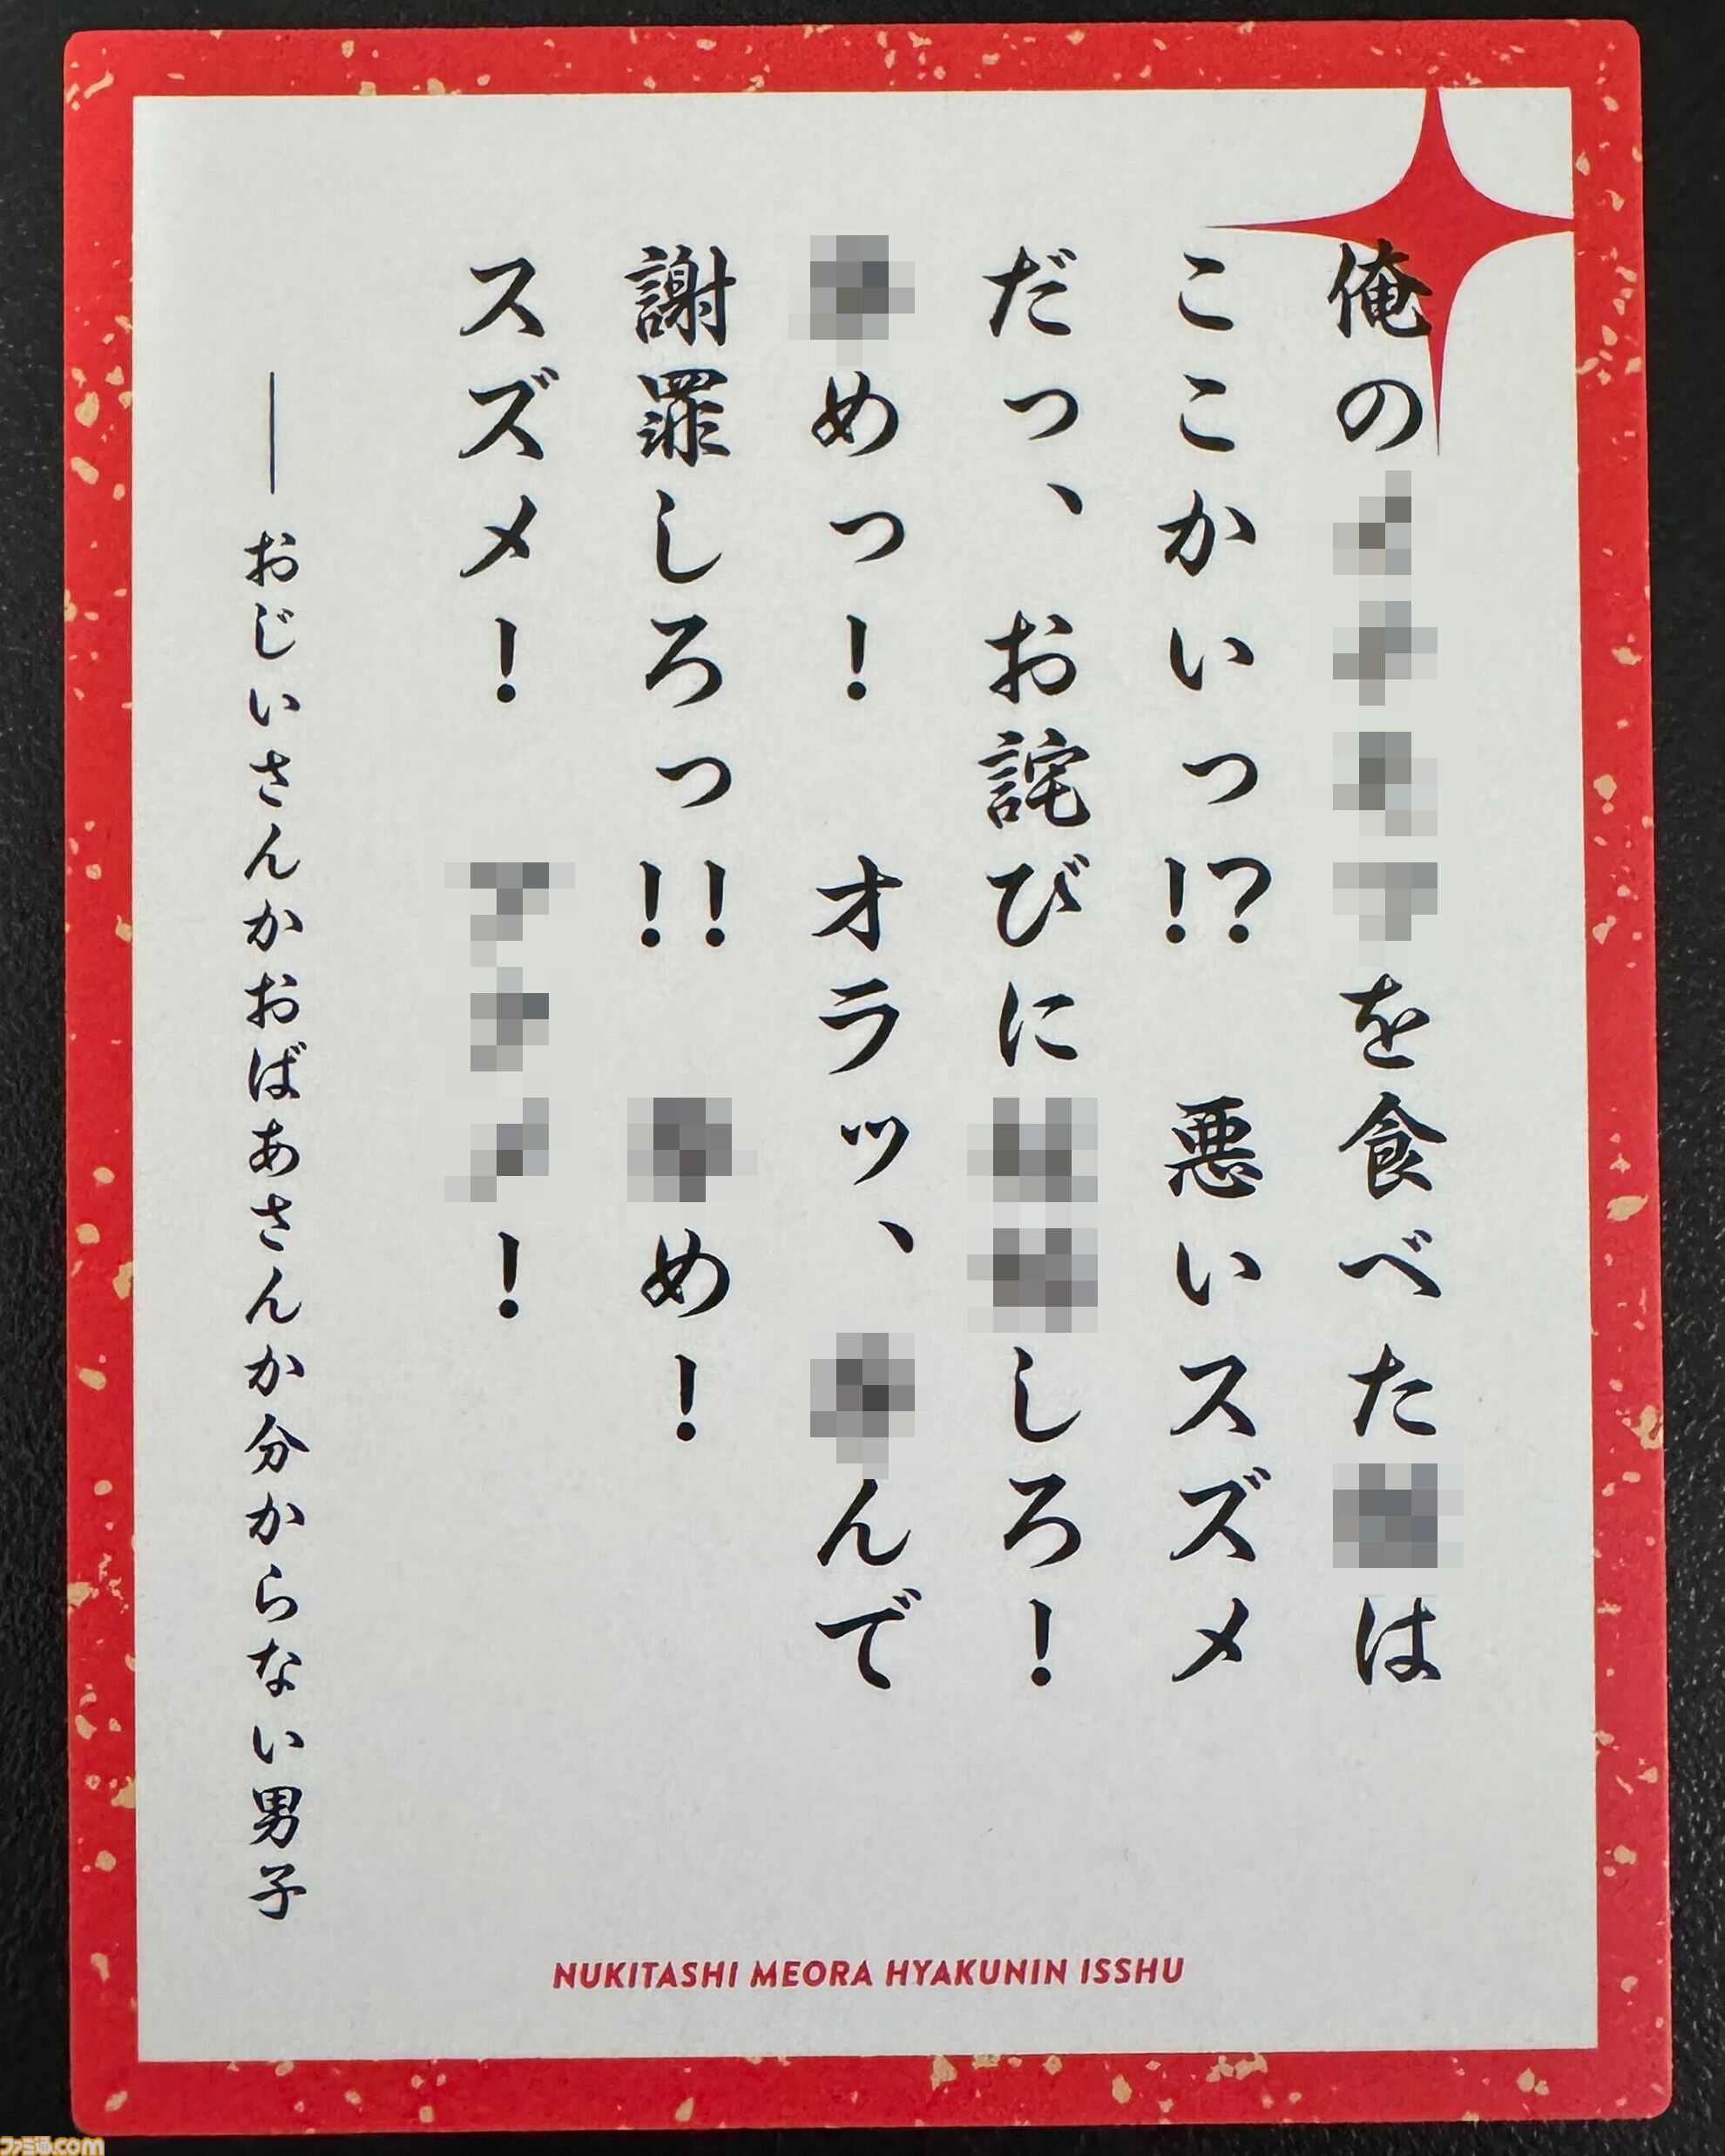 俺のを食べたは
ここかいっ!? 悪いスズメ
だっ、お詫びにしろ!
めっ! オラッ、んで
謝罪しろっ!! め!
スズメ! !
――おじいさんかおばあさんか分からない男子
NUKITASHI MEORA HYAKUNIN ISSHU
ファミ通.com